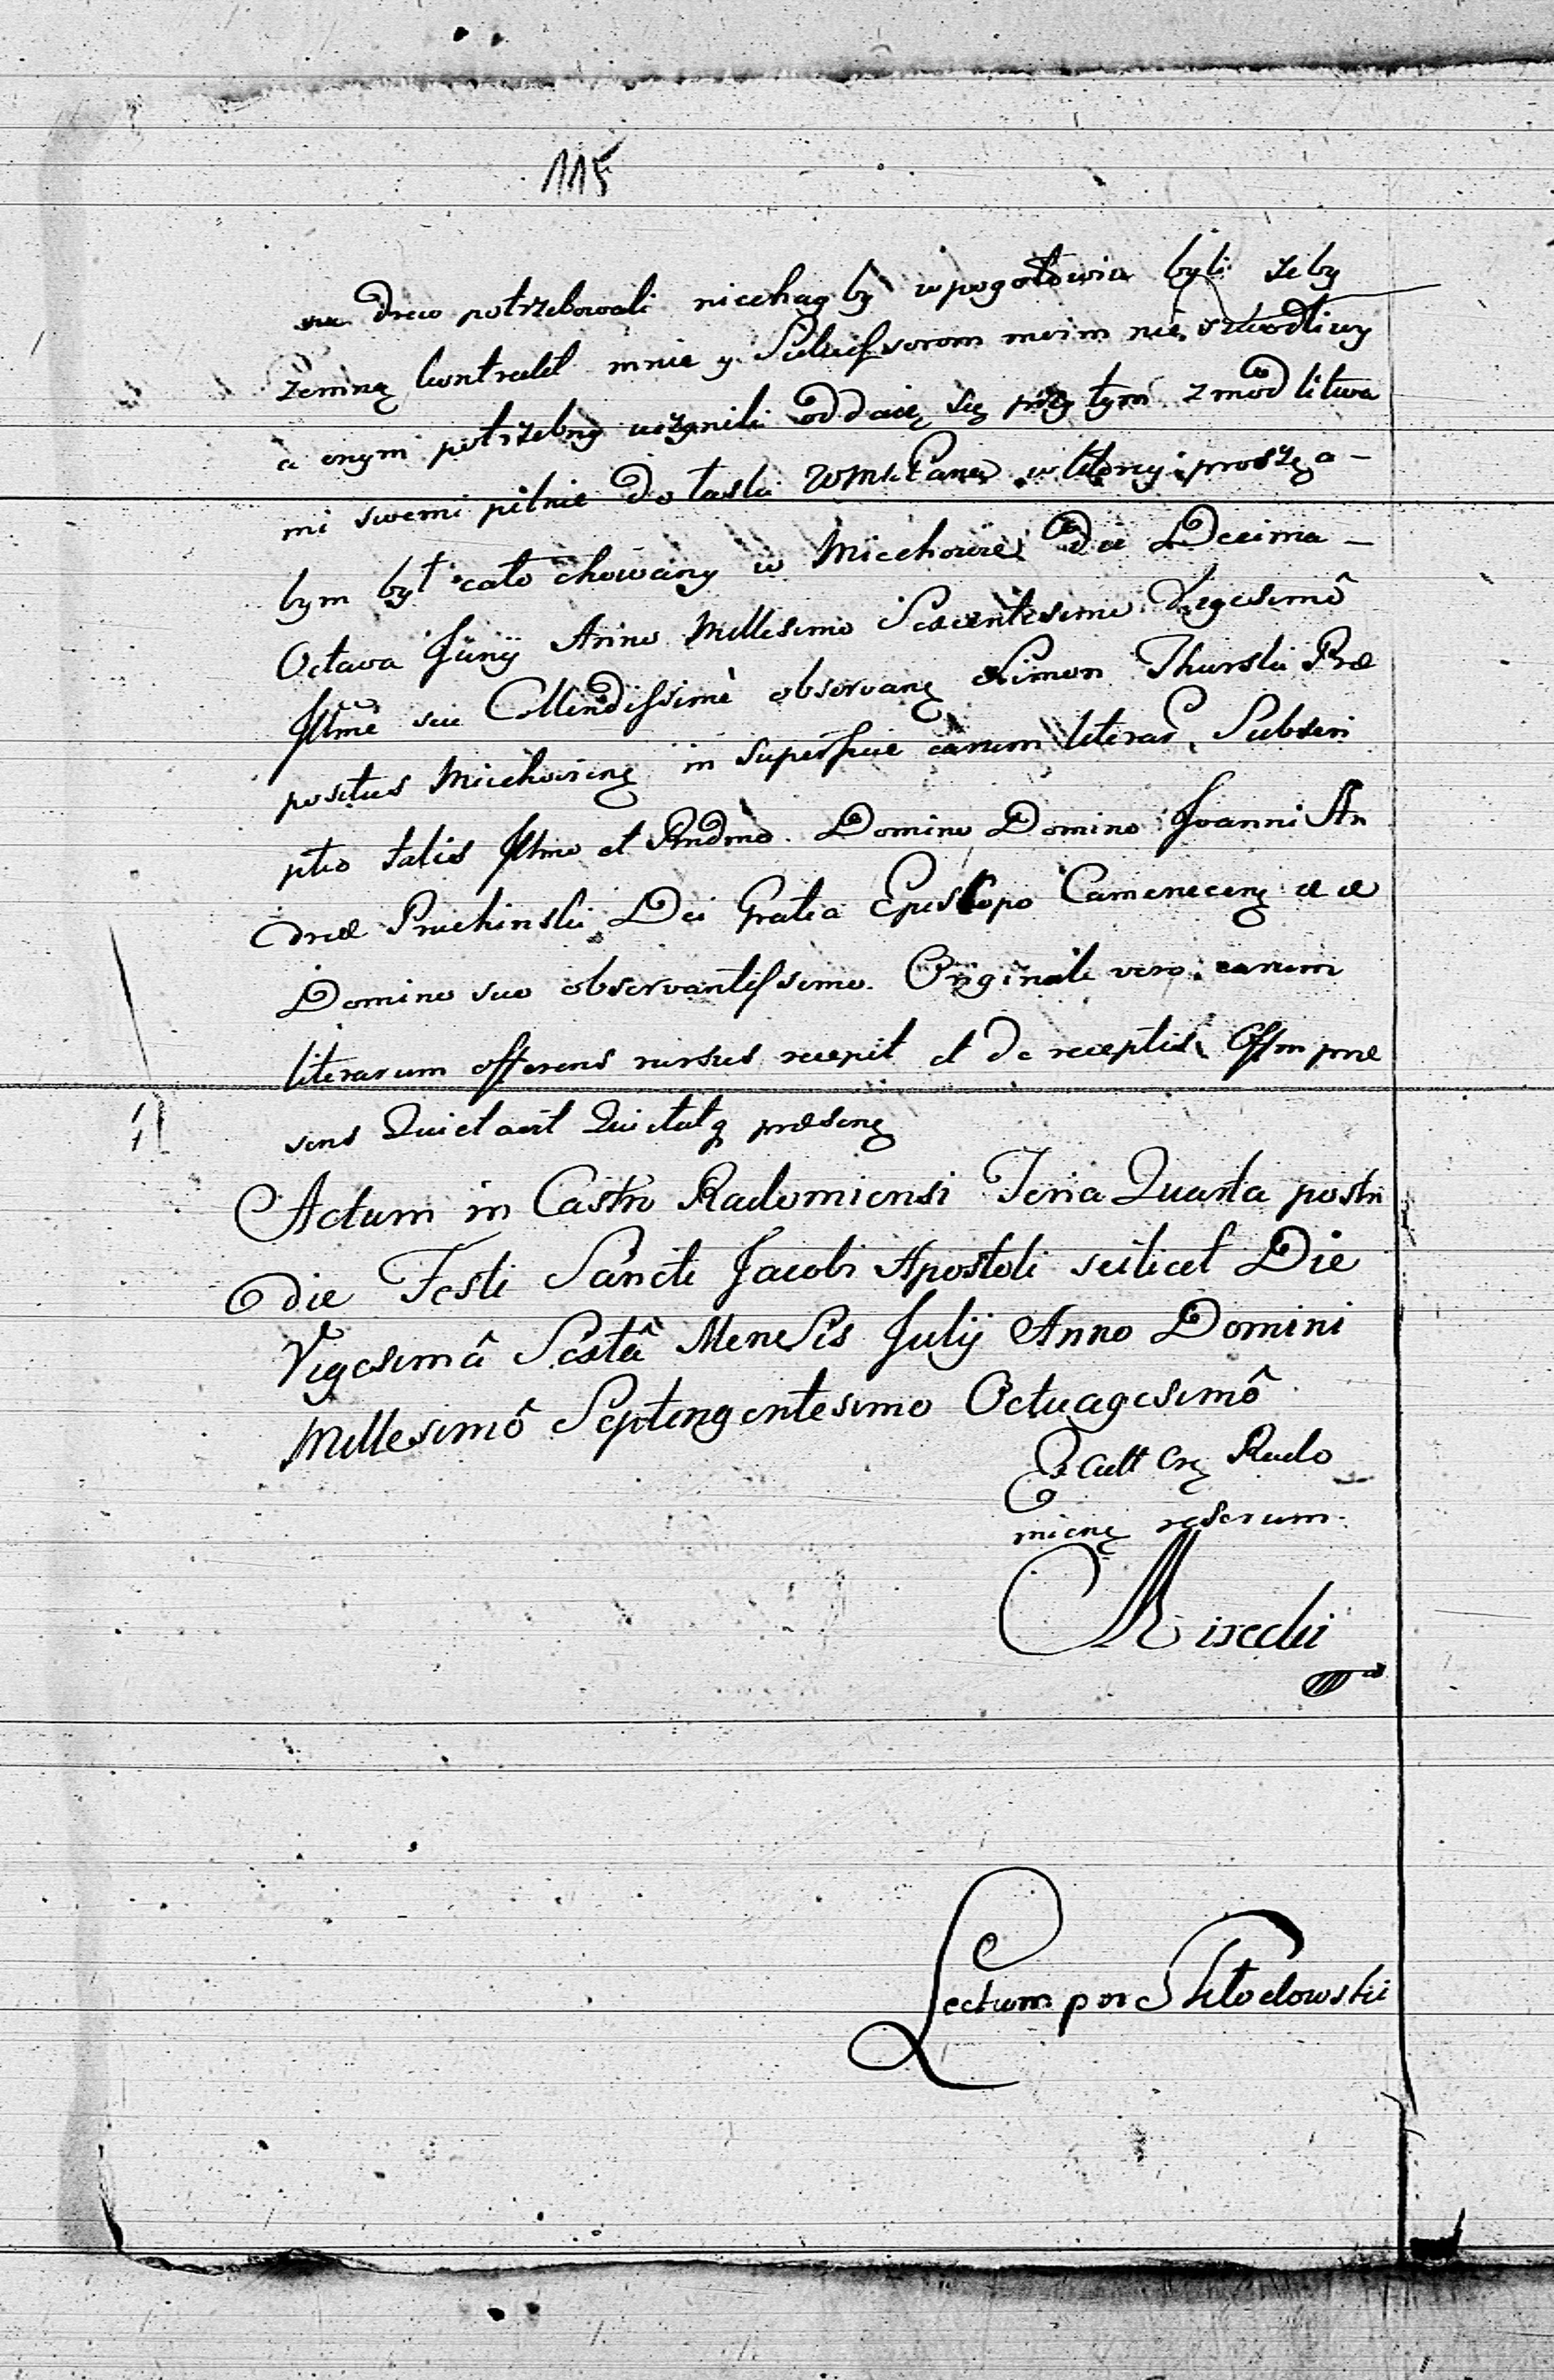 115
na drew potrzebowali niechag by w pogotowiu byli żeby
zemną kontrakt mnie y Sukcessorom moim nie szkodliwy
a onym potrzebny uczynili oddaię się przy tym z modlitwa
mi swemi pilnie do łaski WMści Pana w ktorey proszę a-
bym był cało chowany w Miechowie Die Decima -
Octava Junij Anno Millesimo Sexcentesimo Vigesimô
Illmê suê Collendissimè observanę Simon Thurski Præ
positus Miechovienę in superficie earum literarę Subscri
ptio talis Illmo et Rndmo Domino Domino Joanni An
dreæ Pruchinski Dei Gratia Episkopo Camenecenę &c &c
Domino suo observantissimo. Originale vero earum
literarum offerens rursus recepit et de receptis Offm præ
sens Quietavit Quietatq præsenę
Actum in Castro Radomiensi Feria Quarta postri
die Festi Sancti Jacobi Apostoli scilicet Die
Vigesimâ Sextâ Mensis Julij Anno Domini
Millesimô Septingentesimo Octuagesimô
Ex Actt Crę Rado
mienę
Lectum per Skłodowski